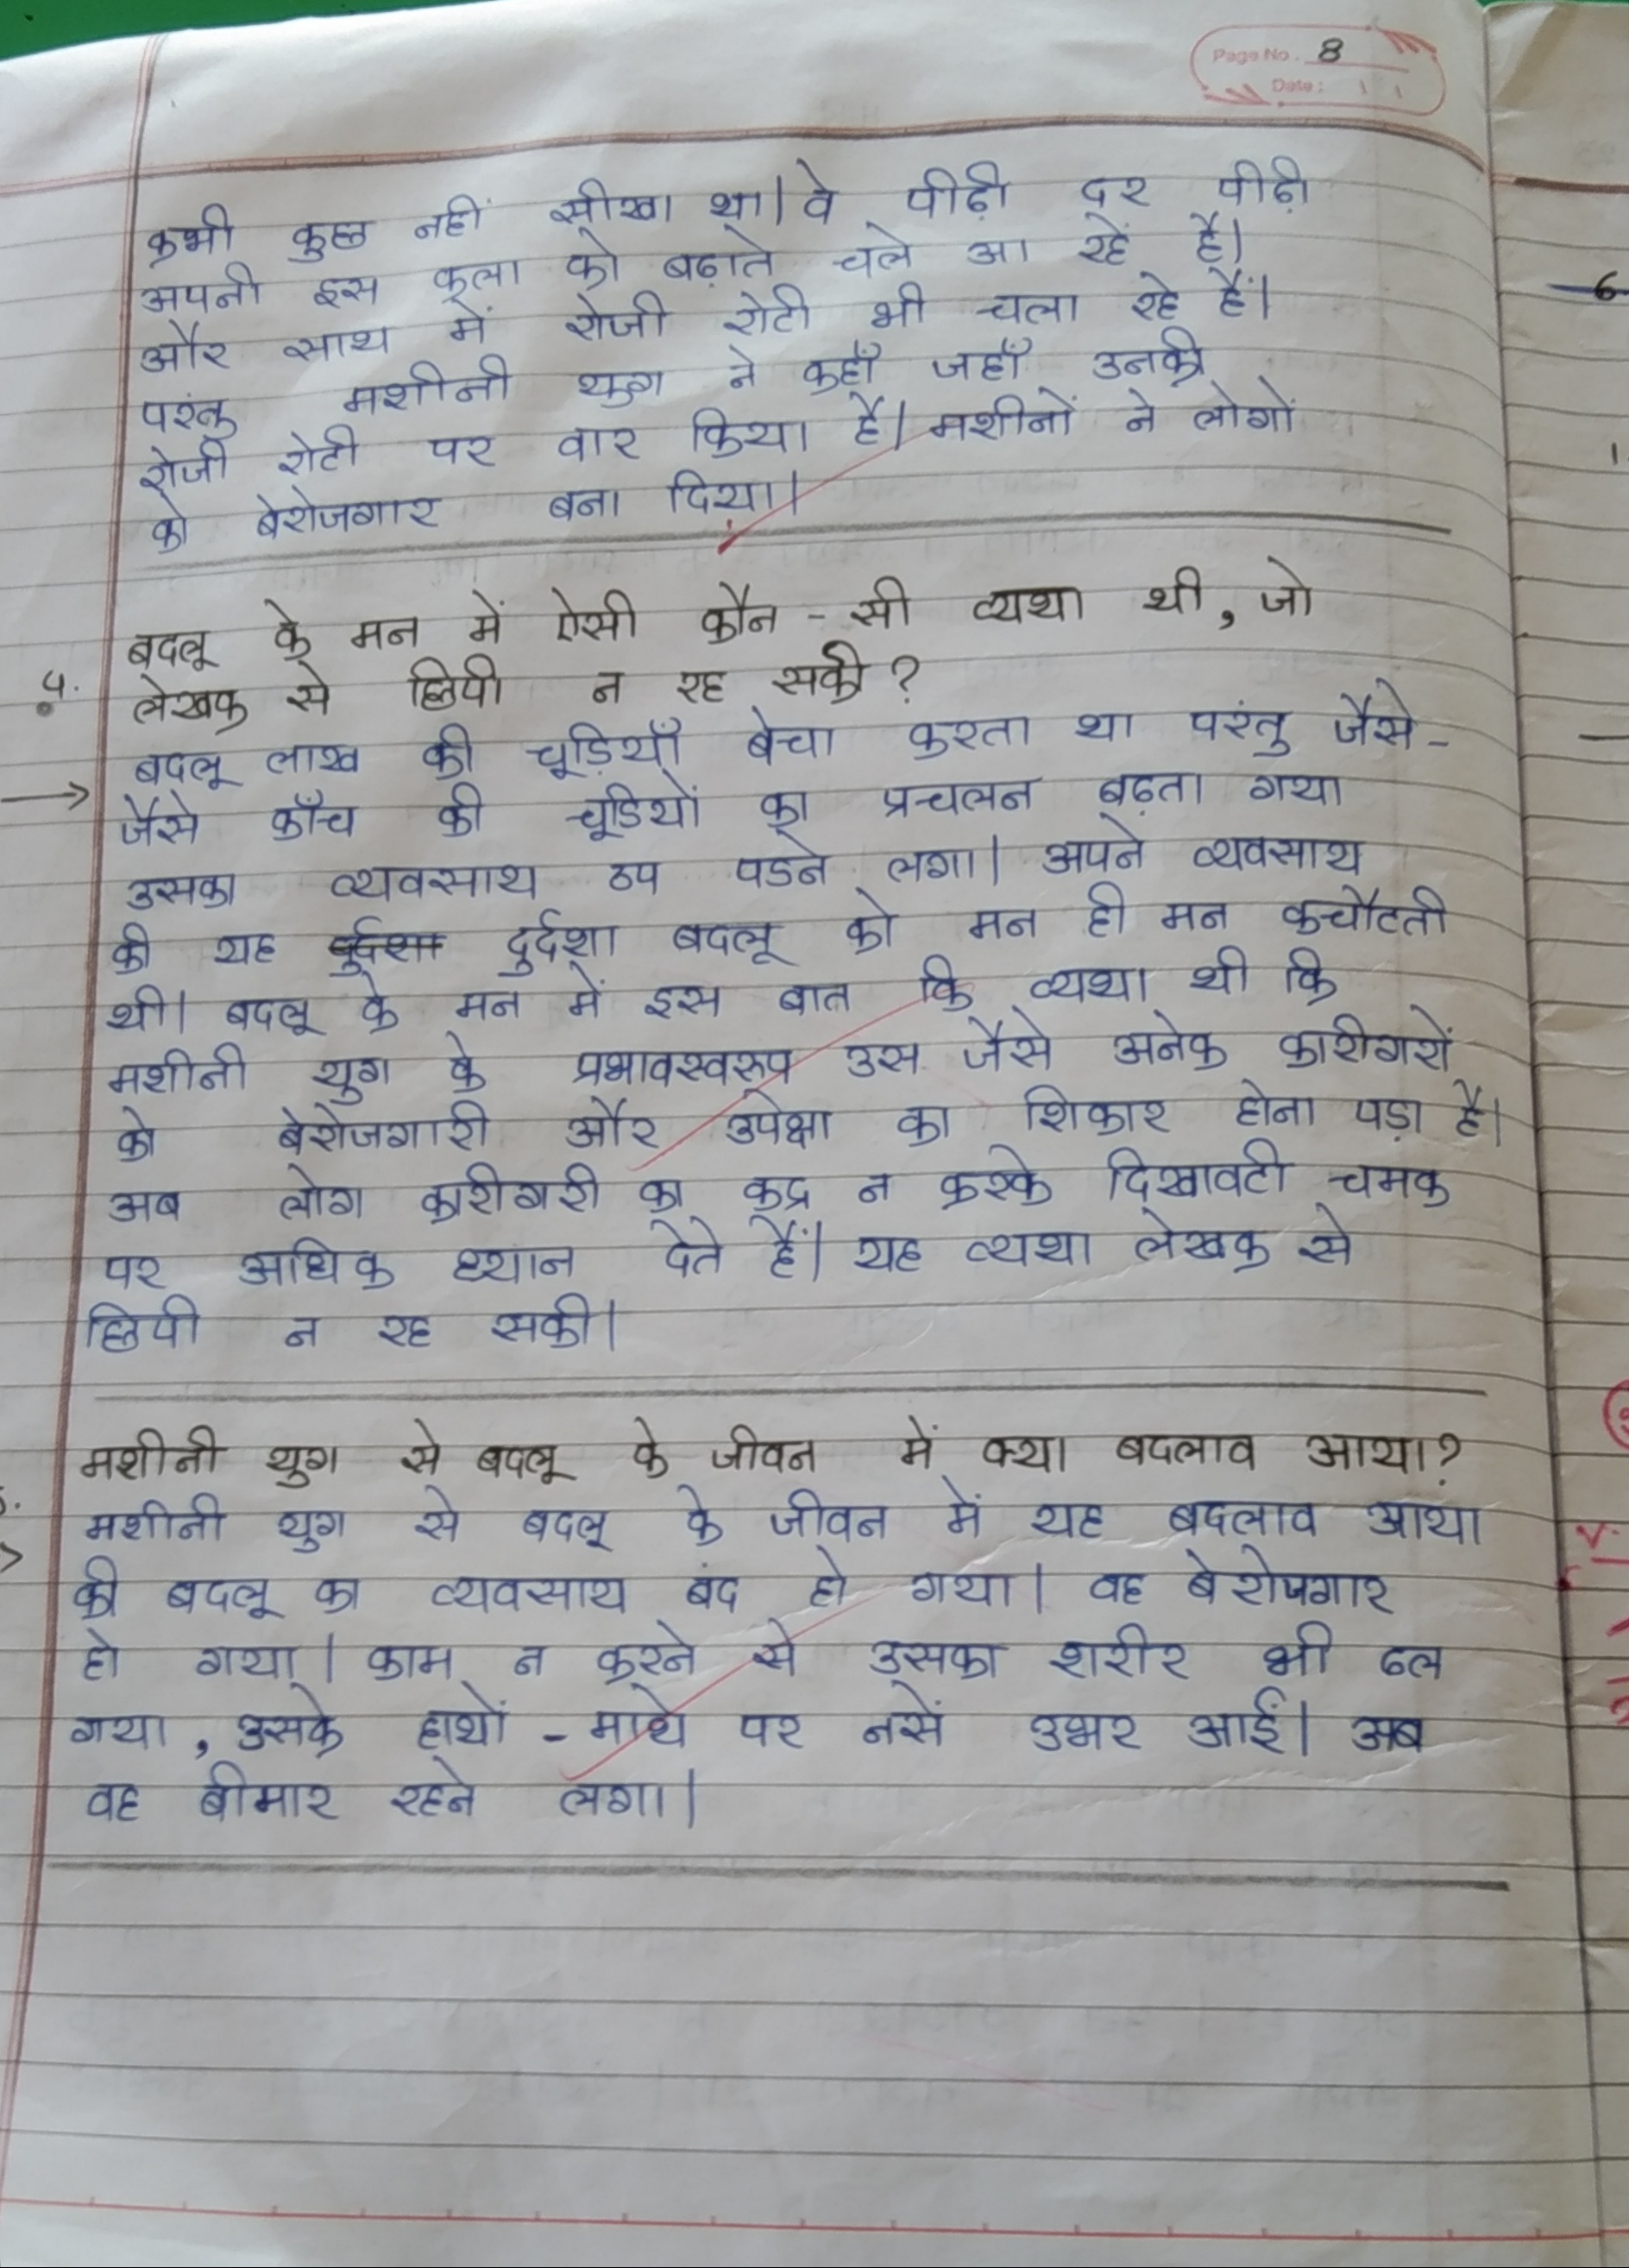 Page No. 8
Date:
कभी कुछ नहीं सीखा था। वे पीढ़ी दर पीढ़ी
अपनी इस कला को बढ़ाते चले आ रहें हैं।
और साथ में रोजी रोटी भी चला रहे हैं।
परंतु मशीनी युग ने कहाँ जहाँ उनकी
रोजी रोटी पर वार किया है। मशीनों ने लोगों
को बेरोजगार बना दिया।
बदलू के मन में ऐसी कौन - सी व्यथा थी, जो
लेखक से छिपी न रह सकी?
बदलू लाख की चूड़ियाँ बेचा करता था परंतु जैसे-
जैसे काँच की चूडियों का प्रचलन बढ़ता गया
उसका व्यवसाय ठप पडने लगा। अपने व्यवसाय
की यह दुर्दशा बदलू को मन ही मन कचौटती
थी। बदलू के मन में इस बात कि व्यथा थी कि
मशीनी युग के प्रभावस्वरूप उस जैसे अनेक कारीगरों
को बेरोजगारी और उपेक्षा का शिकार होना पड़ा है।
अब लोग कारीगरी का कद्र न करके दिखावटी चमक
पर अधिक ध्यान देते हैं। यह व्यथा लेखक से
छिपी न रह सकी।
मशीनी युग से बदलू के जीवन में क्या बदलाव आया?
मशीनी युग से बदलू के जीवन में यह बदलाव आया
की बदलू का व्यवसाय बंद हो गया। वह बेरोजगार
हो गया। काम न करने से उसका शरीर भी ढल
गया, उसके हाथों - माथे पर नसें उभर आईं। अब
वह बीमार रहने लगा।
6